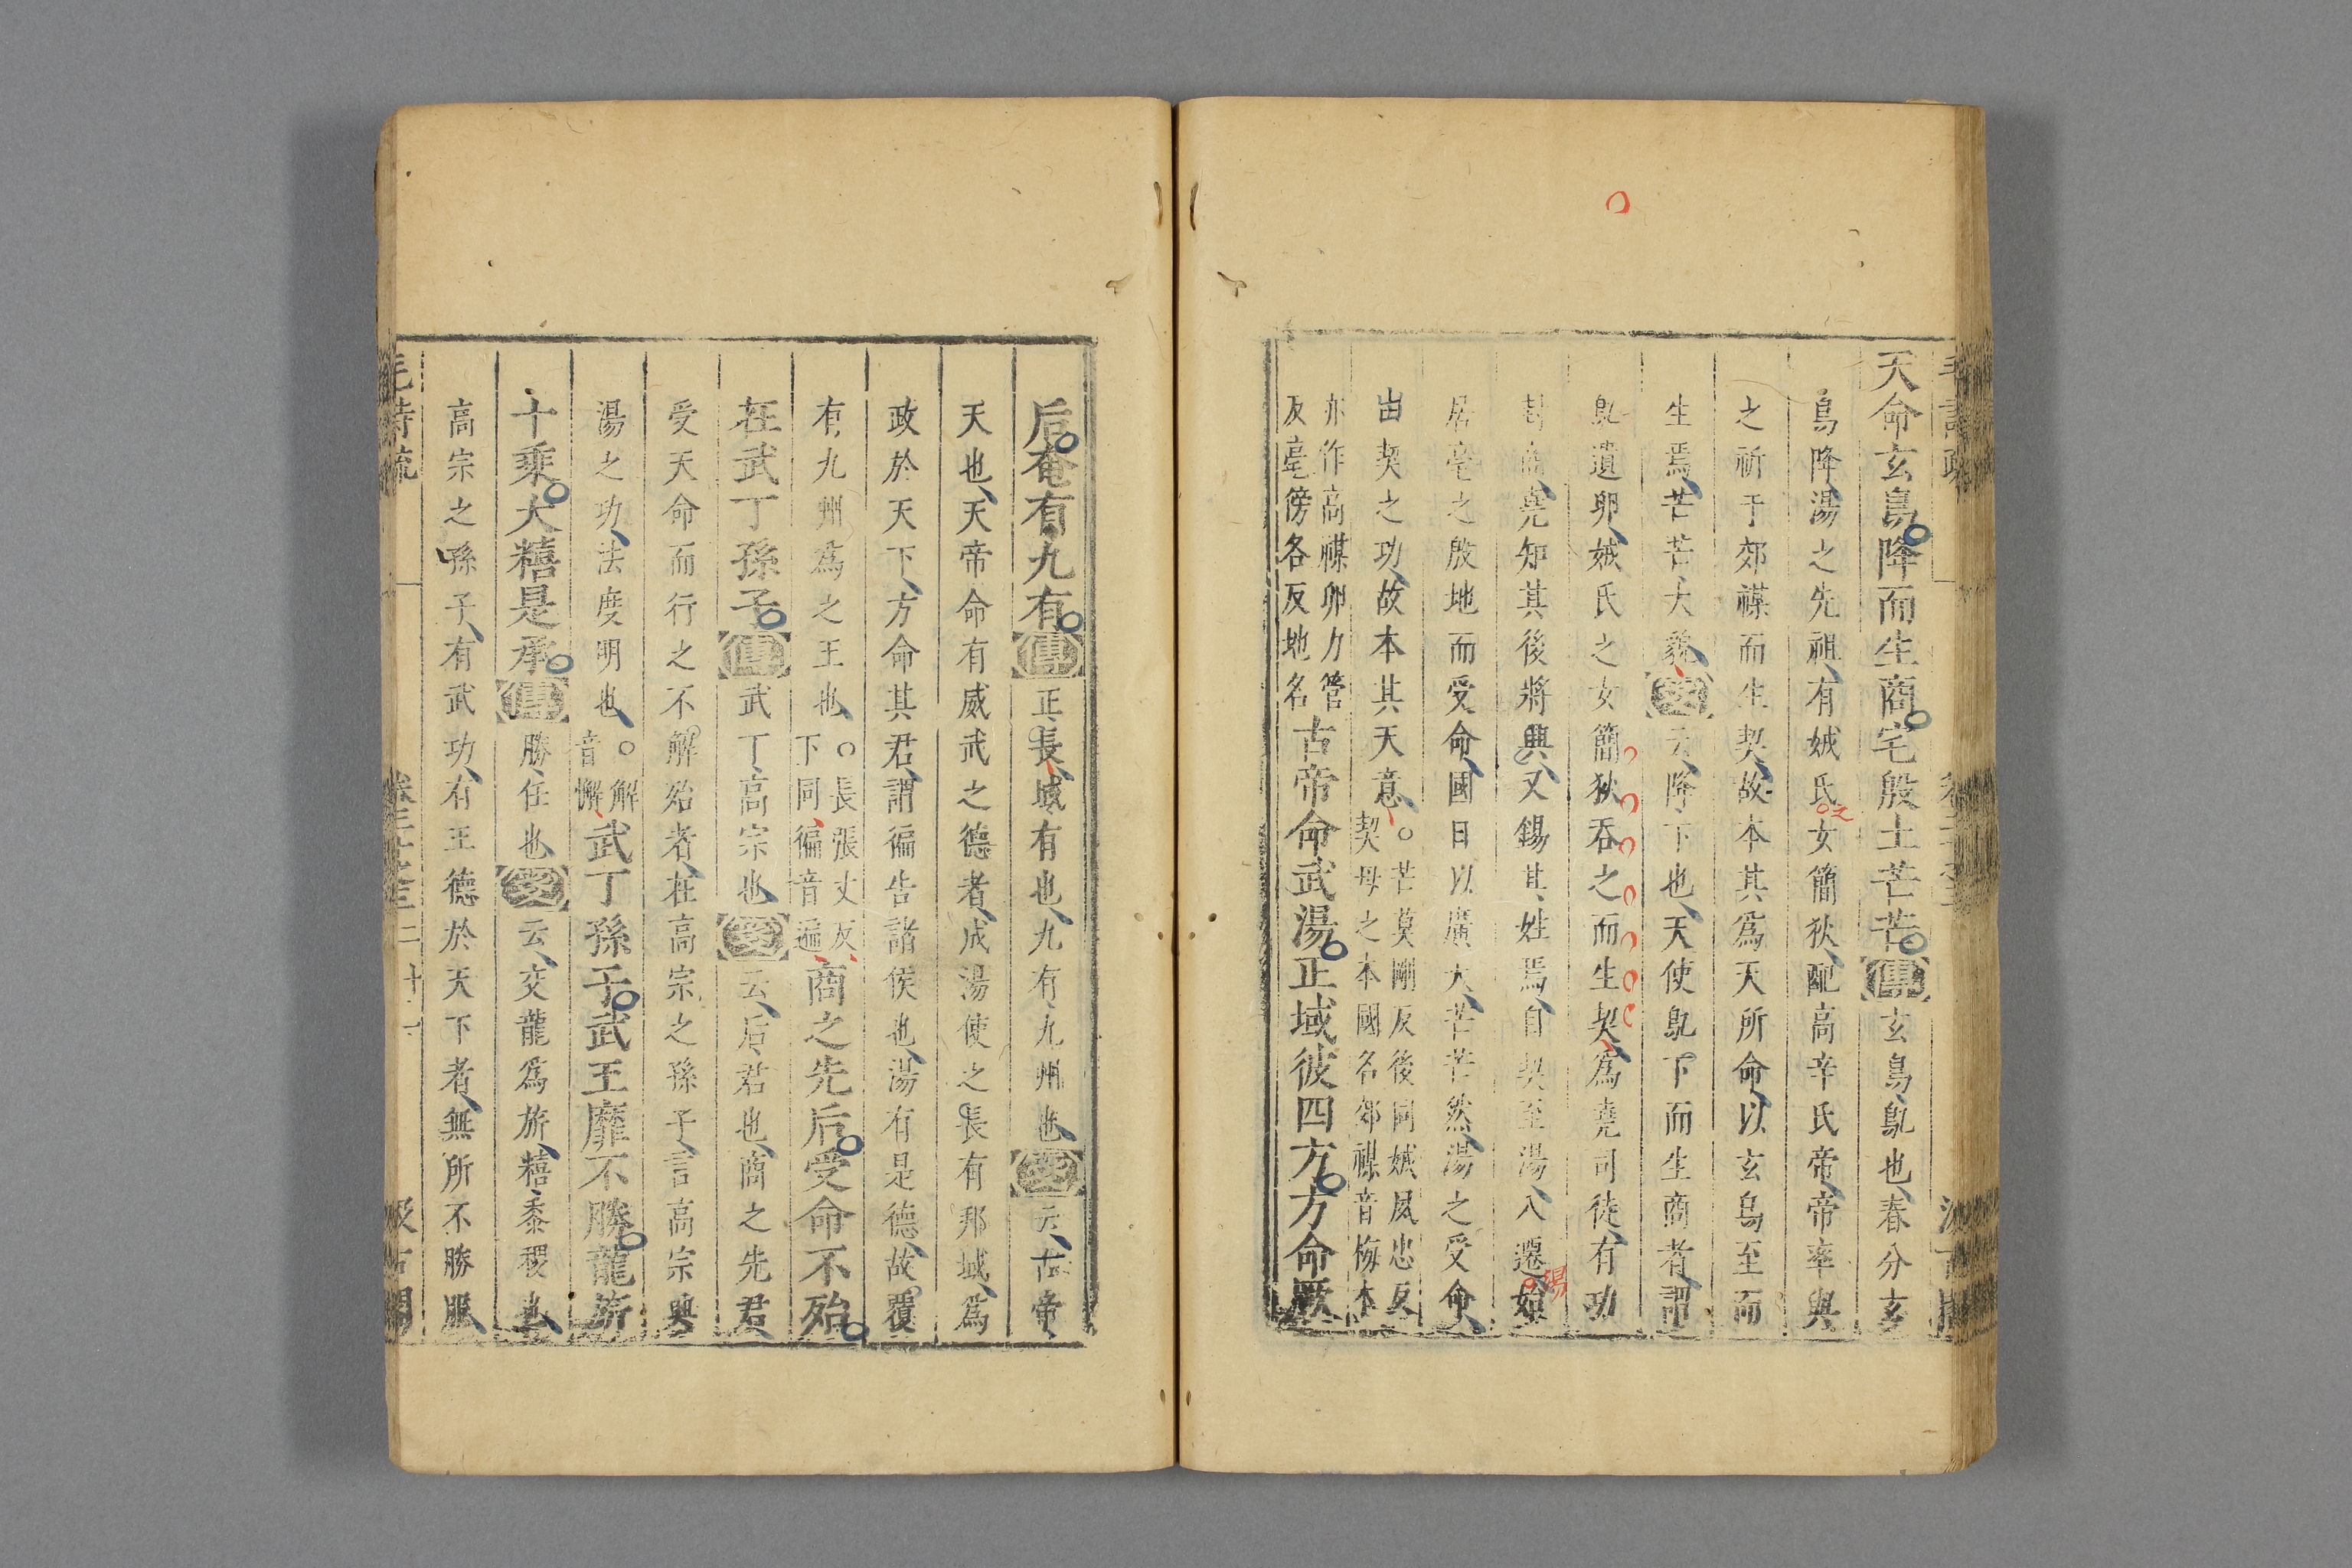 天命玄鳥降而生商宅殷土芒芒傳玄鳥鳦也春分玄
鳥降湯之先祖有娀氏之女簡狄配高辛氏帝帝率與
之祈于郊禖而生契故本其爲天所命以玄鳥至而
生焉芒芒大貌箋云降下也天使鳦下而生商者謂
鳦遺卵娀氏之女簡狄吞之而生契爲堯司徒有功
封商堯知其後將興又錫其姓焉自契至湯八遷始
湯
居亳之殷地而受命國日以廣大芒芒然湯之受命
由契之功故本其天意
○芒莫剛反後同娀夙忠反
契母之本國名郊禖音梅本
亦作高禖卵力管
反亳傍各反地名
古帝命武湯正域彼四方方命厥
后奄有九有傳正長域有也九有九州也箋云古帝
天也天帝命有威武之德者成湯使之長有邦域爲
政於天下方命其君謂徧告諸侯也湯有是德故覆
有九州爲之王也
○長張丈反
下同徧音遍
商之先后受命不殆
在武丁孫子傳武丁高宗也箋云后君也商之先君
受天命而行之不解殆者在高宗之孫子言高宗興
湯之功法度明也
○解
音懈
武丁孫子武王靡不勝龍旂
十乘大糦是承傳勝任也箋云交龍爲旂糦黍稷也
高宗之孫子有武功有王德於天下者無所不勝服
毛詩疏
卷二十之三
十一
汲古閣